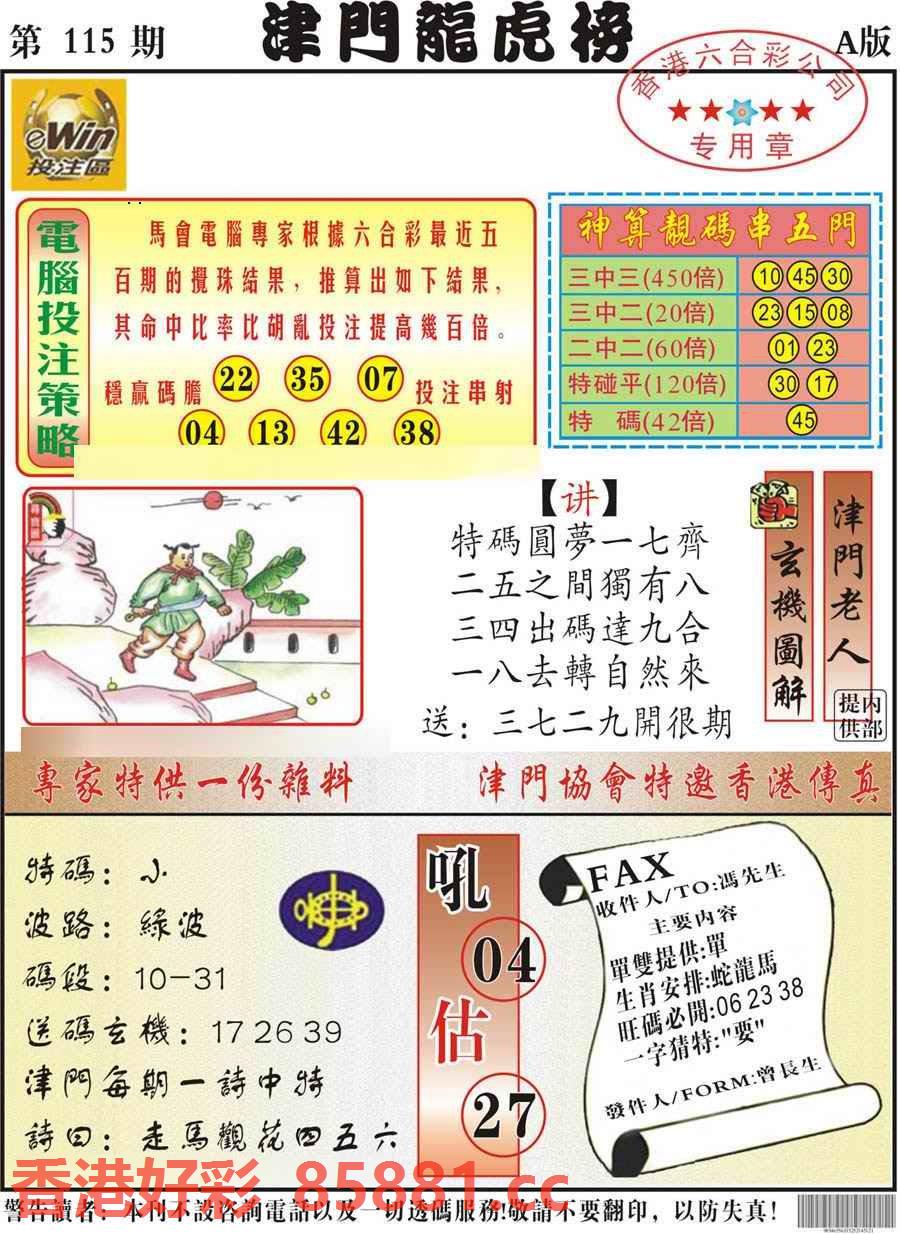 第 115 期
津門龍虎榜
A版
香港六合彩公司
专用章
eWin
投注區
電腦投注策略
馬會電腦專家根據六合彩最近五
百期的攪珠結果，推算出如下結果，
其命中比率比胡亂投注提高幾百倍。
穩贏碼膽 22 35 07 投注串射
04 13 42 38
神算靚碼串五門
三中三(450倍) 10 45 30
三中二(20倍) 23 15 08
二中二(60倍) 01 23
特碰平(120倍) 30 17
特 碼(42倍) 45
【讲】
特碼圓夢一七齊
二五之間獨有八
三四出碼達九合
一八去轉自然來
送：三七二九開很期
玄機圖解
津門老人
内部提供
專家特供一份雜料
津門協會特邀香港傳真
特碼：小
波路：綠波
碼段：10-31
送碼玄機：17 26 39
津門每期一詩中特
詩曰：走馬觀花四五六
吼
04
估
27
FAX
收件人/TO:馮先生
主要内容
單雙提供:單
生肖安排:蛇龍馬
旺碼必開:06 23 38
一字猜特:"要"
發件人/FORM:曾長生
香港好彩 85881.cc
警告讀者：本刊不設咨詢電話以及一切透碼服務!敬請不要翻印，以防失真!